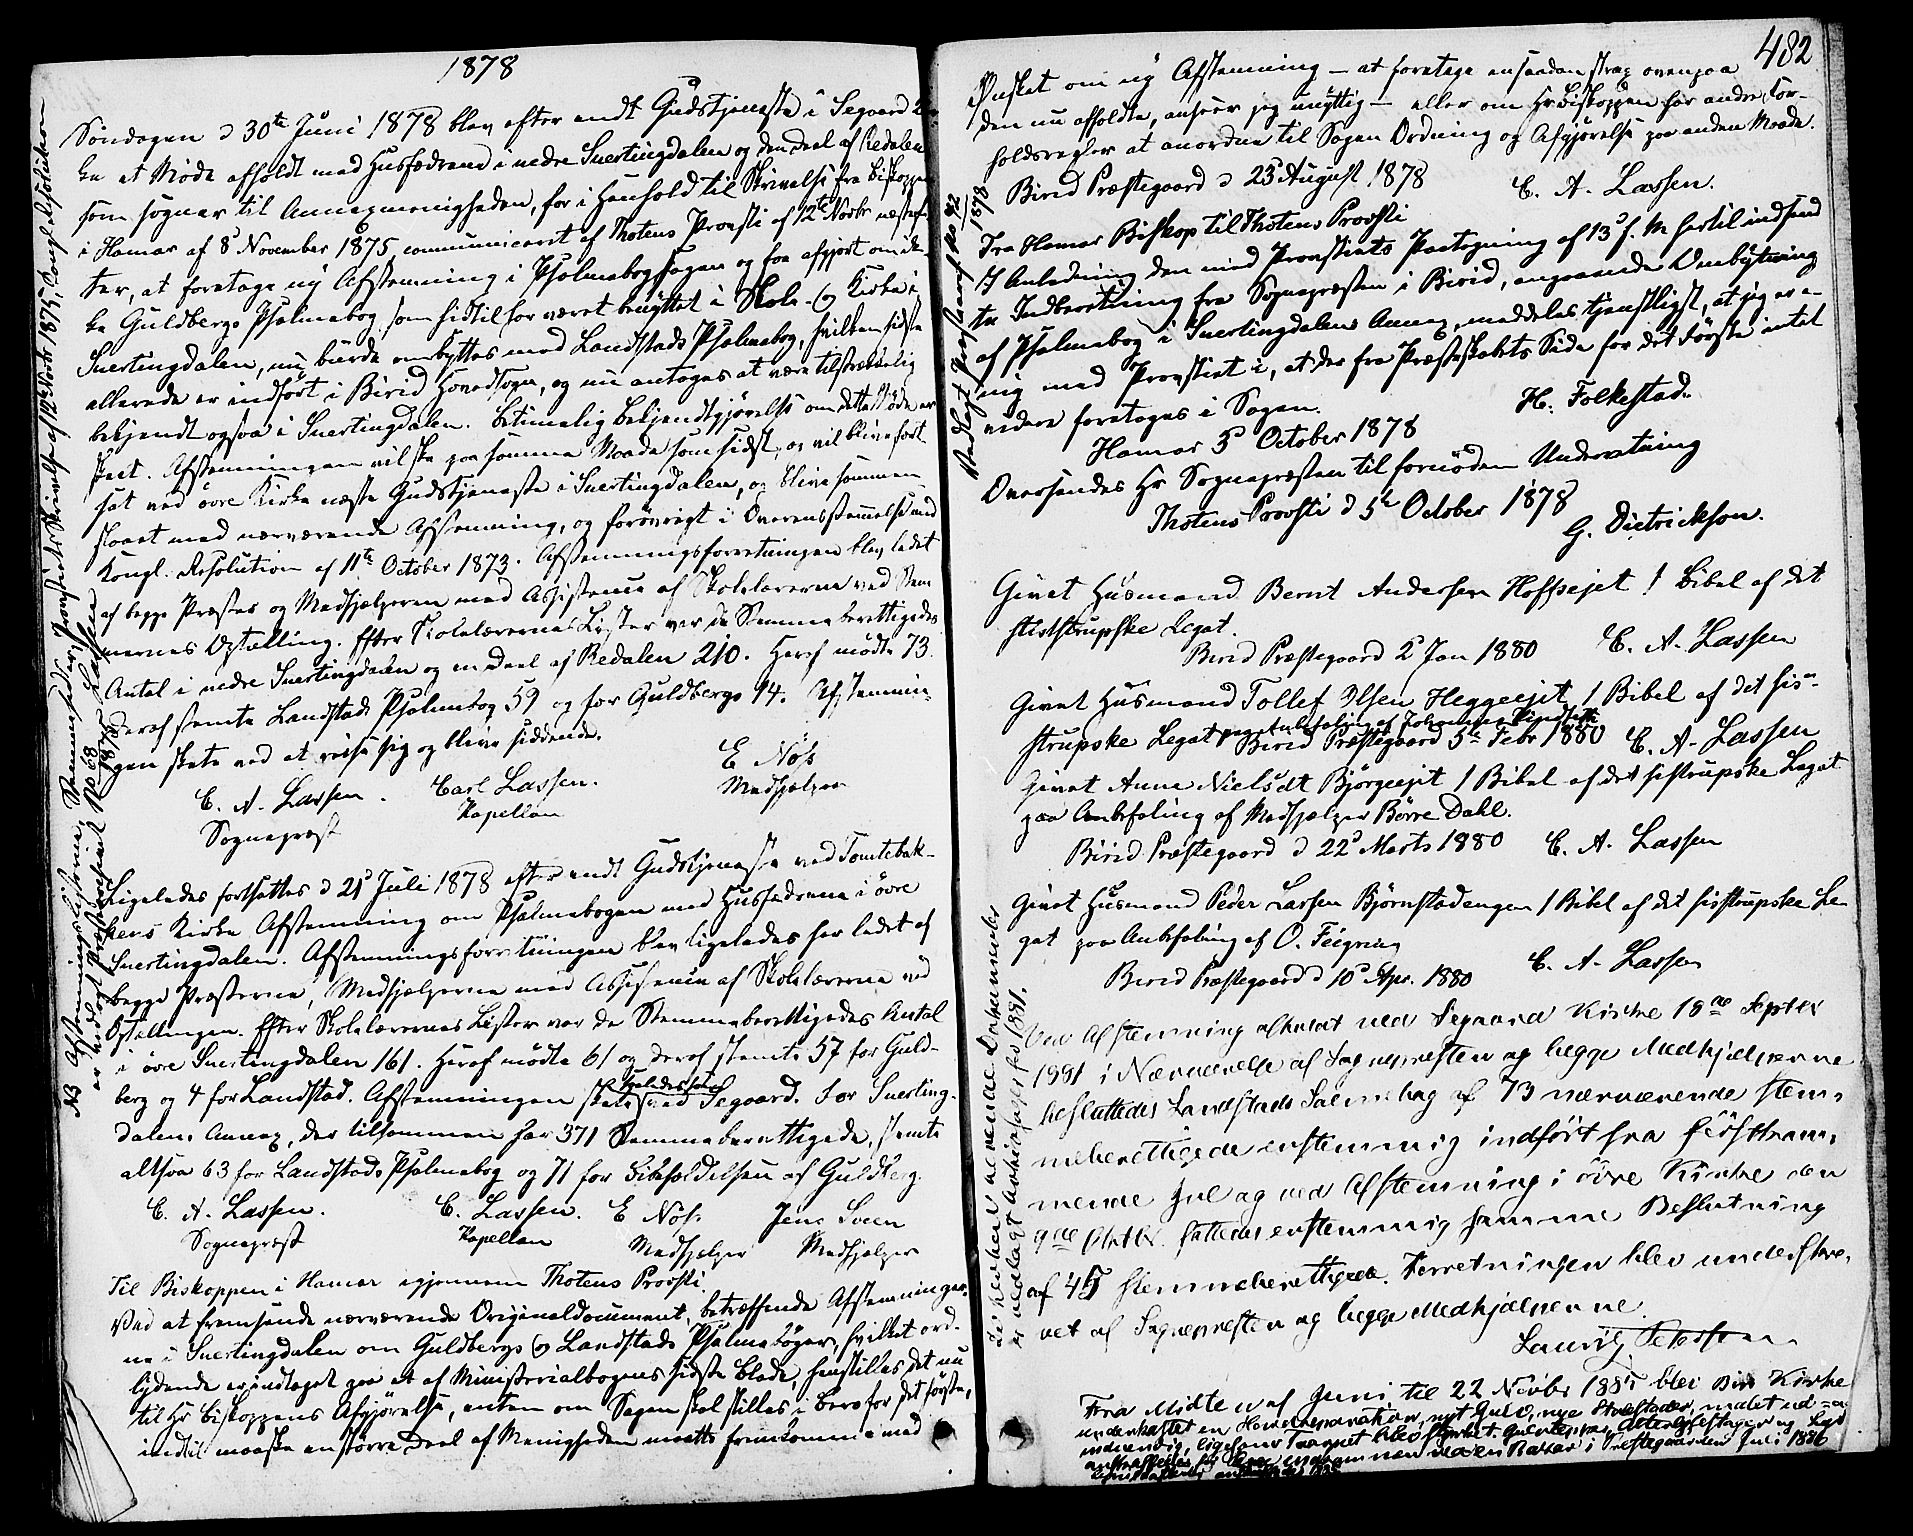 1878
Søndagen d 30te Juni 1878 blev efter endt Gudstjeneste i Segaard
ke et Møde afholdt med Husfædrene i nedre Snertingdalen og den Deel af Redalen
som sogner til Annexmenigheden, for i Henhold til Skrivelse fra Biskoppen
i Hamar af 8d November 1875, communiceret af Thotens Provsti af 12te Novbr næstef-
ter, at foretage ny Afstemning i Psalmebogsagen og faa afgjort om ik-
ke Guldbergs Psalmebog, som hidtil har været benyttet i Skole- og Kirke i
Snertingdalen, nu burde ombyttes med Landstads Psalmebog, hvilken sidste
allerede er indført i Birid Hovedsogn, og nu antages at være tilstrækkelig
bekjendt ogsaa i Snertingdalen. Betimelig Bekjendtgjørelse om dette Møde er
skeet. Afstemningen vil ske paa samme Maade som sidst, og vil blive fort-
sat ved øvre Kirke næste Gudstjeneste i Snertingdalen, og blive sammen-
staaet med nærværende Afstemning, og forøvrigt i Overensstemmelse med
Kongl. Resolution af 11te October 1873. Afstemningsforretningen blev ledet
af begge Præster og Medhjælperen med Assistence af Skolelærerne ved Stem-
mernes Optælling. Efter Skolelærernes Lister var de Stemmeberettigedes
Antal i nedre Snertingdalen og en Deel af Redalen 210. Heraf mødte 73.
Deraf stemte Landstads Psalmebog 59 og for Guldbergs 14. Afstemnin-
gen skete ved at reise sig og blive siddende.
E. A. Lassen. Carl Lassen. E Nøss
Sognepræst Kapellan Medhjælper
Ligeledes fortsattes d 21d Juli 1878 efter endt Gudstjeneste ved Tomtebak-
kens Kirke Afstemning om Psalmebogen med Husfædrene i øvre
Snertingdalen. Afstemningsforretningen blev ligeledes her ledet af
begge Præsterne, Medhjælperne med Assistence af Skolelærerne ved
Optællingen. Efter Skolelærernes Lister var de Stemmeberettigedes Antal
i øvre Snertingdalen 161. Heraf mødte 61 og deraf stemte 57 for Guld-
berg og 4 for Landstad. Afstemningen skete ligeledes som ved Segaard. For Snerting-
dalens Annex, der tilsammen har 371 Stemmeberettigede, stemte
altsaa 63 for Landstads Psalmebog og 71 for Bibeholdelsen af Guldberg.
E. A. Lassen. C. Lassen. E Nøss. Jens Sveen
Sognepræst Kapellan Medhjælper Medhjælper
Til Biskoppen i Hamar igjennem Thotens Provsti.
Ved at fremsende nærværende Originaldocument, betræffende Afstemninger-
ne i Snertingdalen om Guldbergs og Landstads Psalmebøger, hvilket ord-
lydende er indtaget paa et af Ministerialbogens sidste Blade, henstilles det nu
til Hr Biskoppens Afgjørelse, enten om Sagen skal stilles i Bero for det første,
indtil maaske en større Deel af Menigheden maatte fremkomme med
NB Afstemningslisterne, Stemmesedler, Provstiets Skrivelse af 12te Novbr 1875, Kongl. Resolution
er nedlagt Præstearchivet No 68 1878 Lassen
482
Ønsket om ny Afstemning – at foretage en saadan strax ovenpaa
den nu afholdte, anseer jeg unyttig – eller om Hr Biskoppen har andre For-
holdsregler at anordne til Sagens Ordning og Afgjørelse paa anden Maade.
Birid Præstegaard d 23d August 1878 E. A. Lassen.
Fra Hamar Biskop til Thotens Provsti
I Anledning den med Provstiets Paategning af 13d f. M. hertil indsend-
te Indberetning fra Sognepræsten i Birid, angaaende Ombytning
af Psalmebog i Snertingdalens Annex, meddeles tjenstligst, at jeg er e-
nig med Provstiet i, at der fra Præsteskabets Side for det Første intet
videre foretages i Sagen.
Hamar 3d October 1878 H. Folkestad.
Oversendes Hr Sognepræsten til fornøden Underretning
Thotens Provsti d 5te October 1878
G. Dietrickson.
Nedlagt Præstearch No 92 1878
Givet Husmand Bernt Andersen Hoffsejet 1 Bibel af det
Histstrupske Legat.
Birid Præstegaard 2d Jan 1880 E. A. Lassen
Givet Husmand Tollef Olsen Heggeejet 1 Bibel af det his-
strupske Legat paa Anbefaling af Johannes
Birid Præstegaard 5te Febr 1880 E. A. Lassen
Givet Anne Nielsdt Bjørgeejet 1 Bibel af det histrupske Legat
paa Anbefaling af Medhjælper Børre Dahl.
Birid Præstegaard d 22d Marts 1880 E. A. Lassen
Givet Husmand Peder Larsen Bjørnstadengen 1 Bibel af det histrupske Le-
gat paa Anbefaling af O. Feigring
Birid Præstegaard d 10d Apr. 1880 E. A. Lassen
Ved Afstemning afholdt ved Segaard Kirke 18de Septbr
1881 i Nærværelse af Sognepresten og begge Medhjælperne
besluttedes Landstads Salmebog af 73 nærværende stem-
meberettigede enstemmig indført fra førstkom-
mende Jul og ved Afstemning i øvre Kirke den
9de Oktbr. fattedes enstemmig samme Beslutning
af 45 stemmeberettigede. Forretningen blev underskre-
vet af Sognepresten og begge Medhjælperne.
Lauritz Petersen.
De herhen hørende Dokumenter
er nedlagt Arkivet 1881.
Fra Midten af Juni til 22 Novbr 1885 blev Biri Kirke
underkastet en Hovedreparation, nyt Gulv, nye Stolestader, malet ud- og
indvendig, ligesom Taarnet blev styrket.